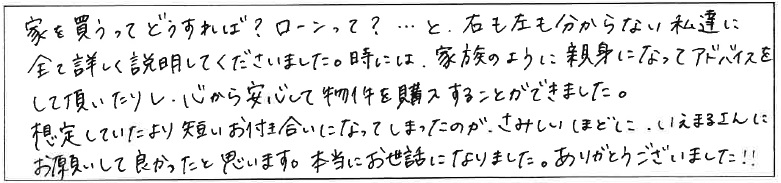 家を買うってどうすれば？ローンって？…と、右も左も分からない私達に
全て詳しく説明してくださいました。時には、家族のように親身になってアドバイスを
して頂いたりし、心から安心して物件を購入することができました。
想定していたより短いお付き合いになってしまったのが、さみしいほどに、いえまるさんに
お願いして良かったと思います。本当にお世話になりました。ありがとうございました！！